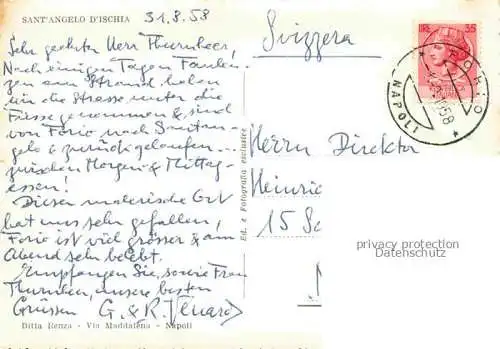 SANT'ANGELO D'ISCHIA
31.8.58
Sehr geehrter Herr Thurnheer,
Nach einigen Tagen Faulen-
zen am Strand haben
wir die Strasse unter die
Füsse genommen & sind
von Forio nach Santan-
gelo & zurück gelaufen...
zwischen Morgen & Mittag-
essen!
Dieser malerische Ort
hat uns sehr gefallen,
Forio ist viel grösser & am
Abend sehr belebt.
Empfangen Sie, sowie Frau
Thurnheer, unsere besten
Grüssen G. & R.
Ditta Renza - Via Maddalena - Napoli
Ed. e Fotografia esclusive
Svizzera
LIRE 35
FORIO
NAPOLI
58
Herrn Direktor
Heinric
15
privacy protection
Dalmations.eu